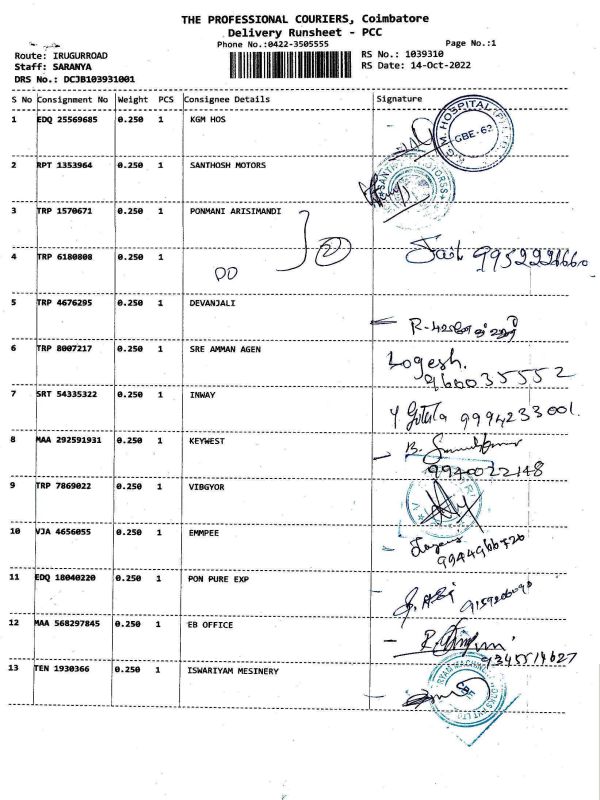 THE PROFESSIONAL COURIERS, Coimbatore
Delivery Runsheet - PCC
Phone No.:0422-3505555 Page No.:1
Route: IRUGURROAD RS No.: 1039310
Staff: SARANYA RS Date: 14-Oct-2022
DRS No.: DCJB103931001
S No Consignment No Weight PCS Consignee Details Signature
1 EDQ 25569685 0.250 1 KGM HOS
K.G.M. HOSPITAL
CBE-62
2 RPT 1353964 0.250 1 SANTHOSH MOTORS
3 TRP 1570671 0.250 1 PONMANI ARISIMANDI
4 TRP 6180808 0.250 1
5 TRP 4676295 0.250 1 DEVANJALI
6 TRP 8007217 0.250 1 SRE AMMAN AGEN Logesh.
960035552
7 SRT 54335322 0.250 1 INWAY 9994233001.
8 MAA 292591931 0.250 1 KEYWEST B.
9940022148
9 TRP 7869022 0.250 1 VIBGYOR
10 VJA 4656055 0.250 1 EMMPEE
11 EDQ 18040220 0.250 1 PON PURE EXP
12 MAA 568297845 0.250 1 EB OFFICE
9345514627
13 TEN 1930366 0.250 1 ISWARIYAM MESINERY